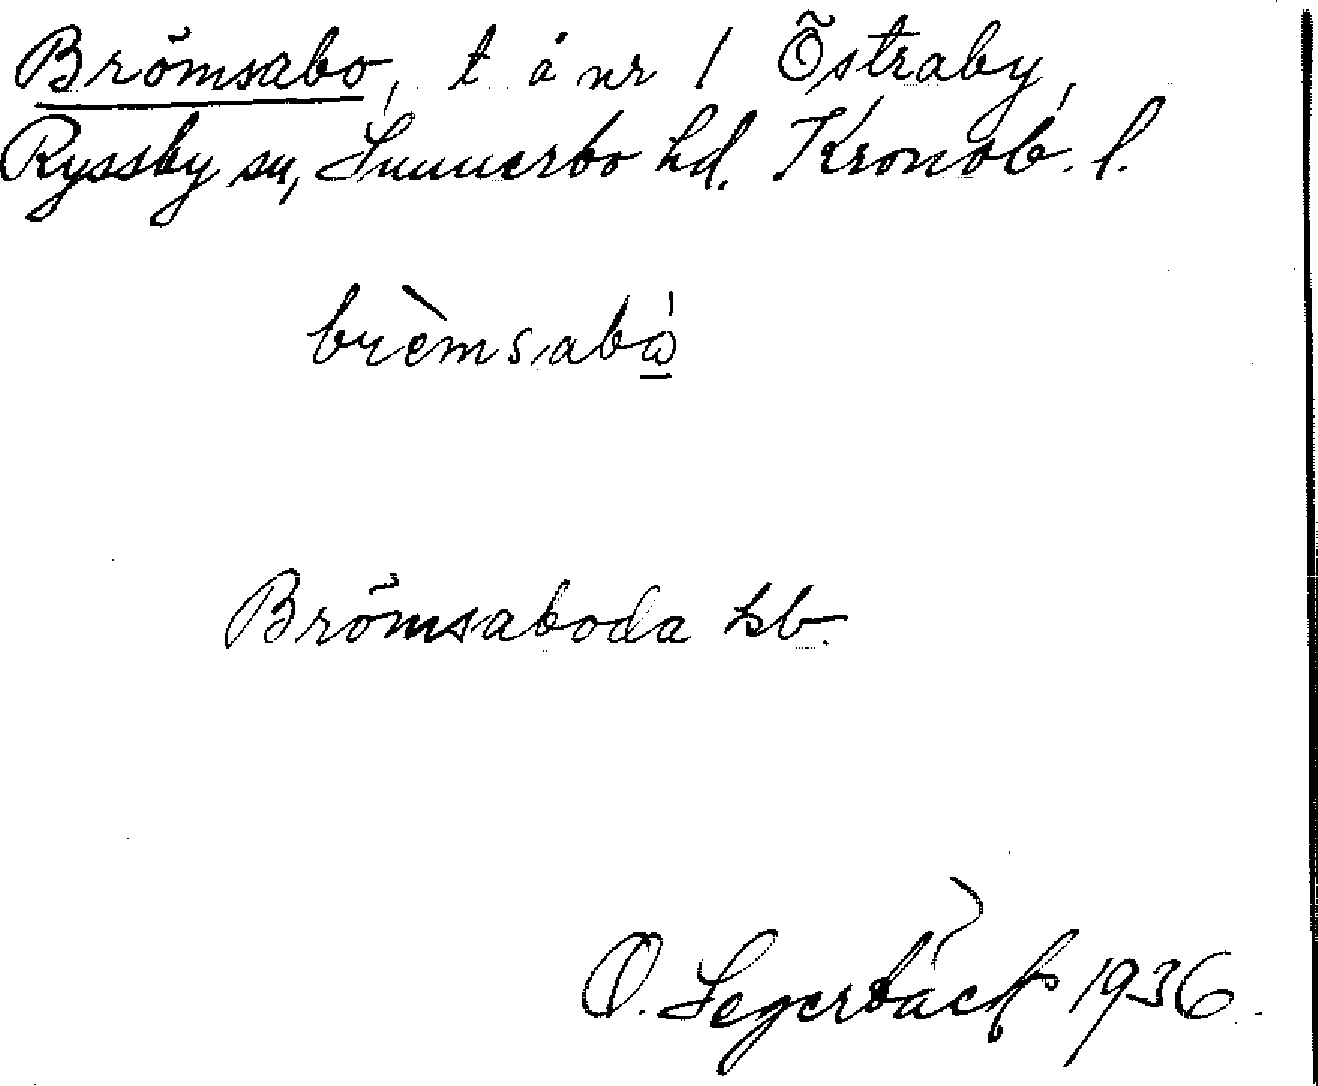 Brömsabo, t å nr 1 Östraby,
Ryssby sn, Sunnerbo hd. Kronob. l.
brèmsabå̲
Brömsaboda hb.
O. Segerbäck 1936.